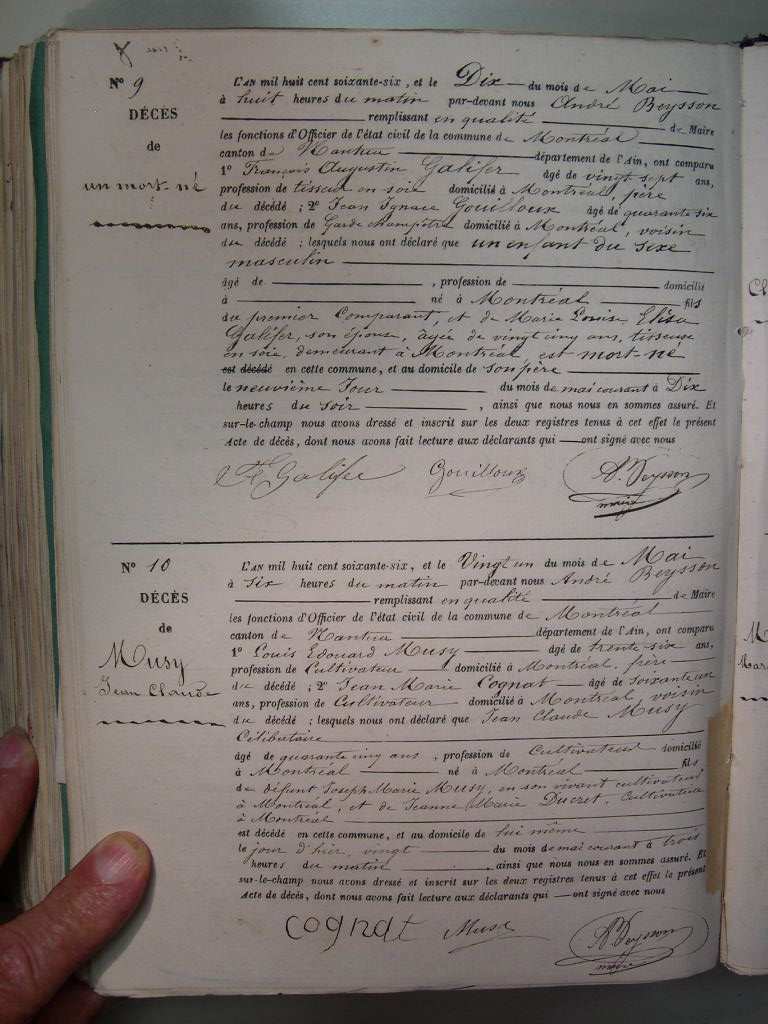 Nº 9
DÉCÈS
de
un mort-né
L'AN mil huit cent soixante-six, et le Dix du mois de Mai
à huit heures du matin par-devant nous André Beysson
remplissant en qualité de Maire
les fonctions d'Officier de l'état civil de la commune de Montréal
canton de Nantua département de l'Ain, ont comparu
1º François Augustin Galifer âgé de vingt sept ans,
profession de tisseur en soie domicilié à Montréal, père
du décédé ; 2º Jean Ignace Gouilloux âgé de quarante six
ans, profession de Garde champêtre domicilié à Montréal, voisin
du décédé ; lesquels nous ont déclaré que un enfant du sexe
masculin
âgé de , profession de domicilié
à né à Montréal fils
du premier Comparant, et de Marie Louise Elisa
Galifer, son épouse, âgée de vingt cinq ans, tisseuse
en soie, demeurant à Montréal est mort-né
est décédé en cette commune, et au domicile de son père
le neuvième Jour du mois de mai courant à Dix
heures du soir , ainsi que nous nous en sommes assuré. Et
sur-le-champ nous avons dressé et inscrit sur les deux registres tenus à cet effet le présent
Acte de décès, dont nous avons fait lecture aux déclarants qui ont signé avec nous
Galifer Gouilloux A. Beysson
maire
Nº 10
DÉCÈS
de
Musy
Jean Claude
L'AN mil huit cent soixante-six, et le Vingt un du mois de Mai
à Six heures du matin par-devant nous André Beysson
remplissant en qualité de Maire
les fonctions d'Officier de l'état civil de la commune de Montréal
canton de Nantua département de l'Ain, ont comparu
1º Louis Edouard Musy âgé de trente-six ans,
profession de Cultivateur domicilié à Montréal, père
du décédé ; 2º Jean Marie Cognat âgé de soixante un
ans, profession de Cultivateur domicilié à Montréal, voisin
du décédé ; lesquels nous ont déclaré que Jean Claude Musy
Célibataire
âgé de quarante cinq ans , profession de Cultivateur domicilié
à Montréal né à Montréal fils
de défunt Joseph Marie Musy, en son vivant cultivateur
à Montréal, et de Jeanne Marie Ducret, Cultivatrice
à Montréal
est décédé en cette commune, et au domicile de lui même
le jour d'hier, vingt du mois de mai courant à trois
heures du matin ainsi que nous nous en sommes assuré. Et
sur-le-champ nous avons dressé et inscrit sur les deux registres tenus à cet effet le présent
Acte de décès, dont nous avons fait lecture aux déclarants qui ont signé avec nous
cognat Musy A. Beysson
maire